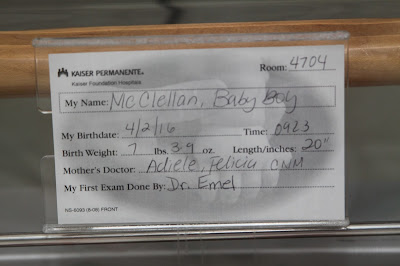 KAISER PERMANENTE® Room: 4704
Kaiser Foundation Hospitals
My Name: McClellan, Baby Boy
My Birthdate: 4/2/16 Time: 0923
Birth Weight: 7 lbs. 3.9 oz. Length/inches: 20"
Mother's Doctor: Adiele, Felicia CNM
My First Exam Done By: Dr. Emel
NS-6093 (6-09) FRONT